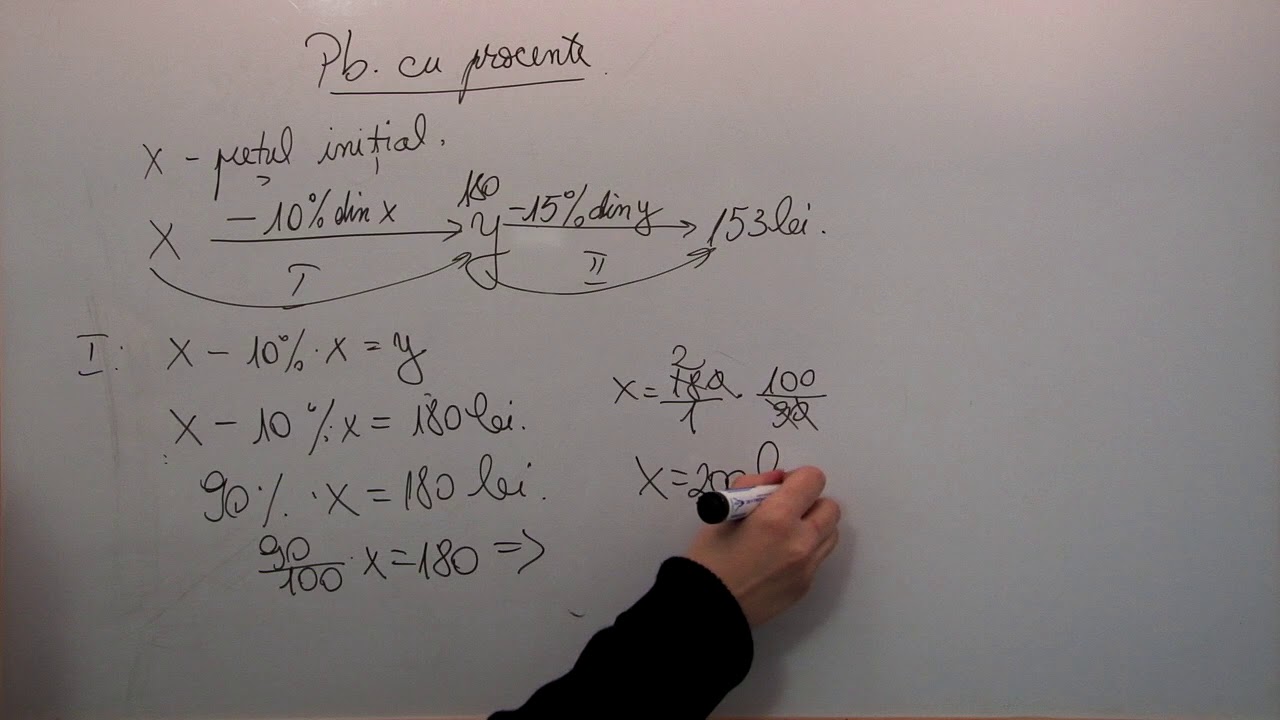 Pb. cu procente
x - prețul inițial.
180
x - 10% din x y - 15% din y 153 lei.
I II
I: x - 10% · x = y
x - 10% · x = 180 lei.
90% · x = 180 lei.
90/100 · x = 180 =>
2
x = 180/1 · 100/90
x = 200 l